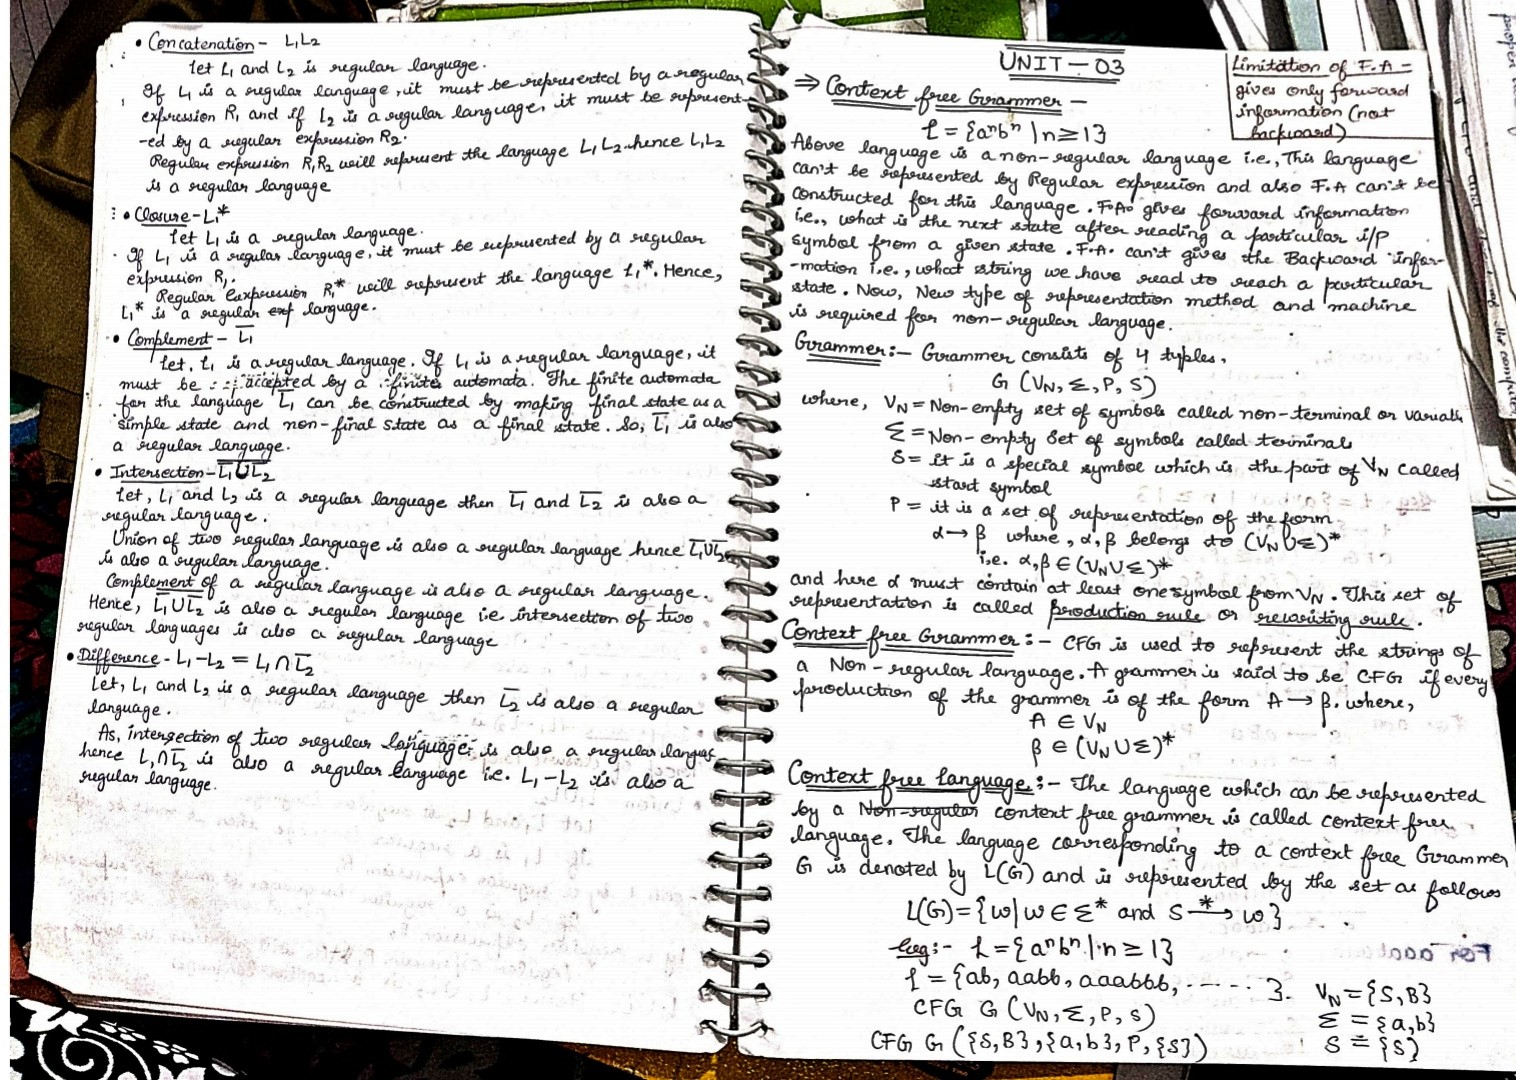 • Concatenation - L₁L₂
let L₁ and L₂ is regular language.
If L₁ is a regular language, it must be represented by a regular
expression R₁ and if L₂ is a regular language, it must be represent-
-ed by a regular expression R₂.
Regular expression R₁R₂ will represent the language L₁L₂ hence L₁L₂
is a regular language
• Closure - L₁*
let L₁ is a regular language.
If L₁ is a regular language, it must be represented by a regular
expression R₁.
Regular Expression R₁* will represent the language L₁*. Hence,
L₁* is a regular exp language.
• Complement - L̅₁
Let, L₁ is a regular language. If L₁ is a regular language, it
must be accepted by a finite automata. The finite automata
for the language L̅₁ can be constructed by making final state as a
simple state and non-final state as a final state. So, L̅₁ is also
a regular language.
• Intersection - L̅₁∪L̅₂
Let, L₁ and L₂ is a regular language then L̅₁ and L̅₂ is also a
regular language.
Union of two regular language is also a regular language hence L̅₁∪L̅₂
is also a regular language.
Complement of a regular language is also a regular language.
Hence, L̅₁∪L̅₂ is also a regular language i.e. intersection of two
regular languages is also a regular language
• Difference - L₁-L₂ = L₁∩L̅₂
Let, L₁ and L₂ is a regular language then L̅₂ is also a regular
language.
As, intersection of two regular language is also a regular language
hence L₁∩L̅₂ is also a regular language i.e. L₁-L₂ is also a
regular language.
UNIT - 03
Limitation of F.A =
gives only forward
information (not
backward)
⇒ Context free Grammer -
L = {aⁿbⁿ | n≥1}
Above language is a non-regular language i.e., This language
can't be represented by Regular expression and also F.A can't be
constructed for this language. F.A. gives forward information
i.e., what is the next state after reading a particular i/p
symbol from a given state. F.A. can't gives the Backward infor-
-mation i.e., what string we have read to reach a particular
state. Now, New type of representation method and machine
is required for non-regular language.
Grammer:- Grammer consists of 4 tuples,
G (V_N, Σ, P, S)
where, V_N = Non-empty set of symbols called non-terminal or variable
Σ = Non-empty Set of symbols called terminals
S = it is a special symbol which is the part of V_N called
start symbol
P = it is a set of representation of the form
α → β where, α, β belongs to (V_N ∪ Σ)*
i.e. α, β ∈ (V_N ∪ Σ)*
and here α must contain at least one symbol from V_N. This set of
representation is called production rule or rewriting rule.
Context free Grammer:- CFG is used to represent the strings of
a Non-regular language. A grammer is said to be CFG if every
production of the grammer is of the form A → β. where,
A ∈ V_N
β ∈ (V_N ∪ Σ)*
Context free language:- The language which can be represented
by a Non-regular context free grammer is called context free
language. The language corresponding to a context free Grammer
G is denoted by L(G) and is represented by the set as follows
L(G) = {w | w ∈ Σ* and S →* w}
eg:- L = {aⁿbⁿ | n ≥ 1}
L = {ab, aabb, aaabbb, ------ }.
CFG G (V_N, Σ, P, S)
CFG G ({S,B}, {a,b}, P, {S})
V_N = {S,B}
Σ = {a,b}
S = {S}